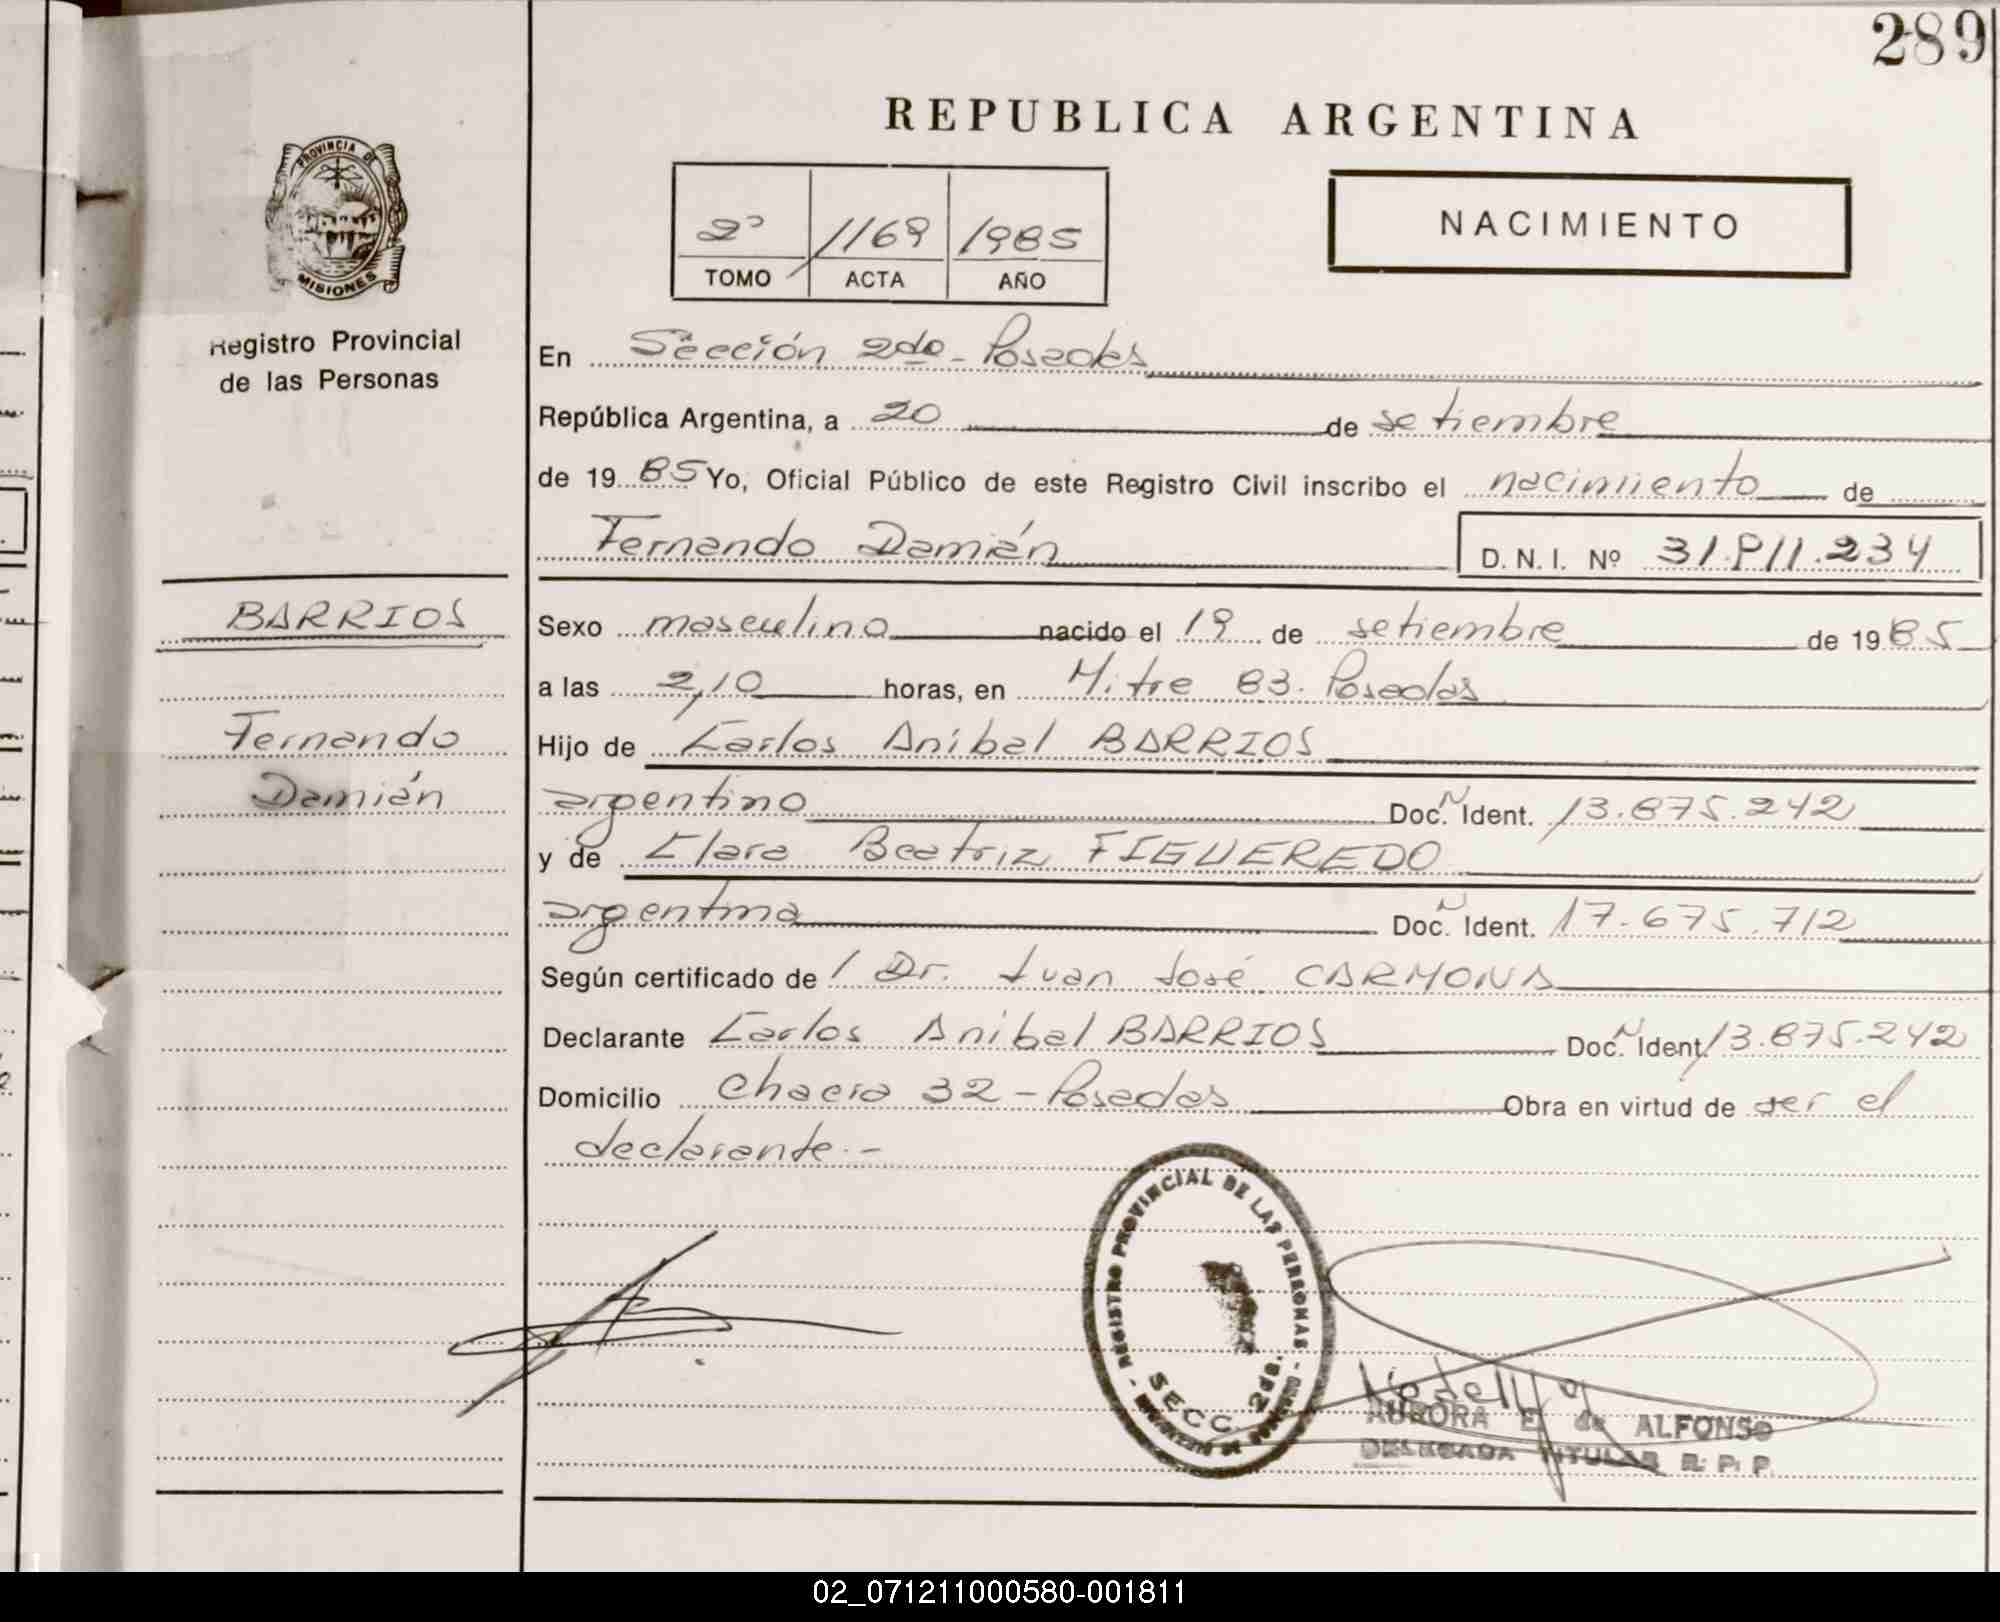 289
REPUBLICA ARGENTINA
PROVINCIA DE
MISIONES
Registro Provincial
de las Personas
2º 1169 1985
TOMO ACTA AÑO
NACIMIENTO
En Sección 2da - Posadas
República Argentina, a 20 de setiembre
de 19 85 Yo, Oficial Público de este Registro Civil inscribo el nacimiento de
Fernando Damián D. N. I. Nº 31.811.234
BARRIOS
Fernando
Damián
Sexo masculino nacido el 19 de setiembre de 19 85
a las 2,10 horas, en Mitre 83. Posadas
Hijo de Carlos Anibal BARRIOS
argentino Doc. N Ident. 13.875.242
y de Clara Beatriz FIGUEREDO
argentina Doc. N Ident. 17.675.712
Según certificado de / Dr. Juan José CARMONA
Declarante Carlos Anibal BARRIOS Doc. N Ident 13.875.242
Domicilio Chacra 32 - Posadas Obra en virtud de ser el
declarante.-
REGISTRO PROVINCIAL DE LAS PERSONAS
SECC. 2da.
AURORA E de ALFONSO
DELEGADA TITULAR R. P. P.
02_071211000580-001811